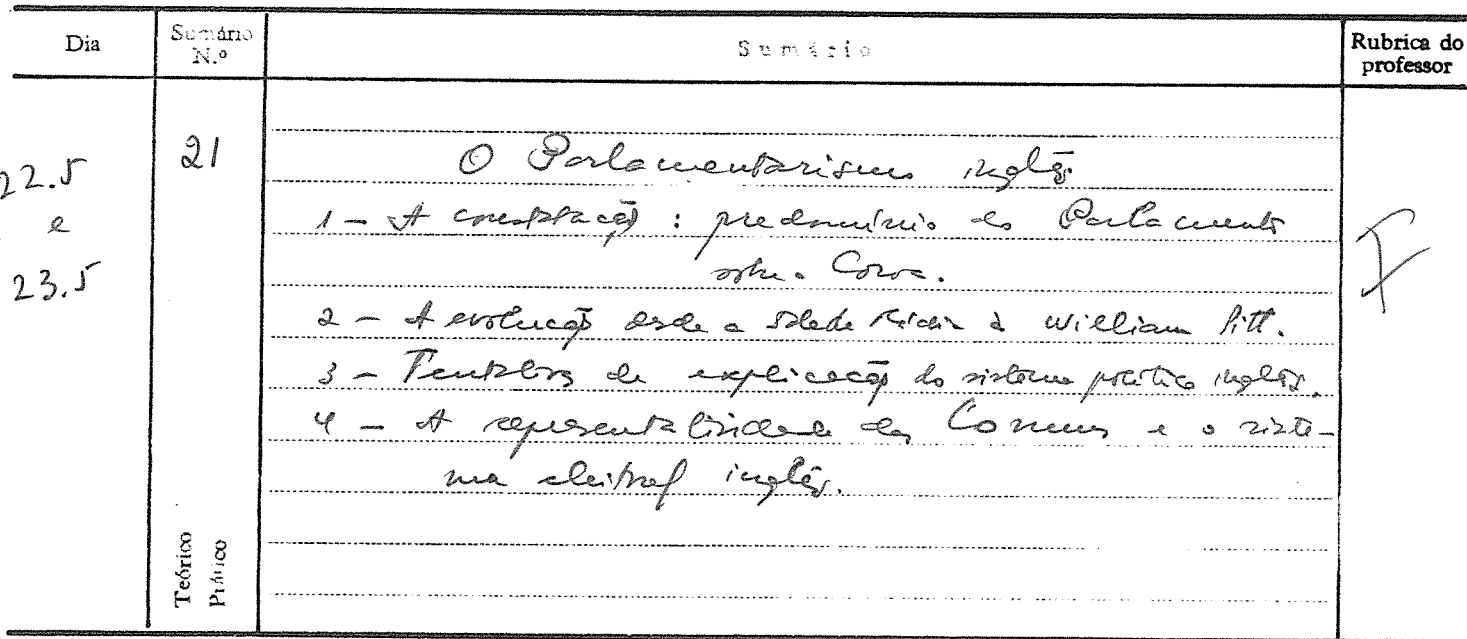 Dia
Sumário N.º
Sumário
Rubrica do professor
22.5
e
23.5
21
O Parlamentarismo inglês
1 - A constatação : predomínio do Parlamento
sobre a Coroa.
2 - A evolução desde a Idade Média a William Pitt.
3 - Tentativa de explicação do sistema político inglês.
4 - A representatividade dos Comuns e o siste-
ma eleitoral inglês.
Teórico
Prático